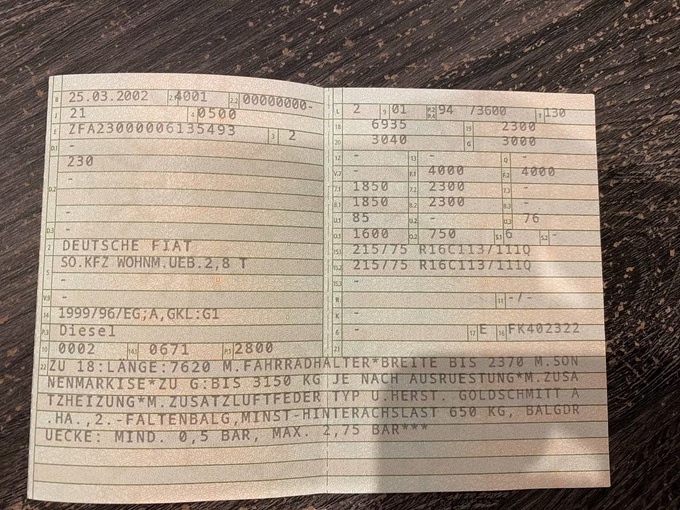 B 25.03.2002 2.1 4001 2.2 00000000-
J 21 4 0500
E ZFA23000006135493 3 2
D.1 -
230
D.2 -
-
D.3 -
2 DEUTSCHE FIAT
5 SO.KFZ WOHNM.UEB.2,8 T
-
V.9 -
14 1999/96/EG;A,GKL:G1
P.3 Diesel
10 0002 14.1 0671 P.1 2800
L 2 9 01 P.2 P.4 94 /3600 T 130
18 6935 19 2300
20 3040 G 3000
12 - 13 - Q -
V.7 - F.1 4000 F.2 4000
7.1 1850 7.2 2300 7.3 -
8.1 1850 8.2 2300 8.3 -
U.1 85 U.2 - U.3 76
O.1 1600 O.2 750 S.1 6 S.2 -
15.1 215/75 R16C113/111Q
15.2 215/75 R16C113/111Q
15.3 -
R - 11 -/-
K -
6 - 17 E 16 FK402322
21
22 ZU 18:LÄNGE:7620 M.FAHRRADHALTER*BREITE BIS 2370 M.SON
NENMARKISE*ZU G:BIS 3150 KG JE NACH AUSRUESTUNG*M.ZUSA
TZHEIZUNG*M.ZUSATZLUFTFEDER TYP U.HERST. GOLDSCHMITT A
.HA.,2.-FALTENBALG,MINST-HINTERACHSLAST 650 KG, BALGDR
UECKE: MIND. 0,5 BAR, MAX. 2,75 BAR***